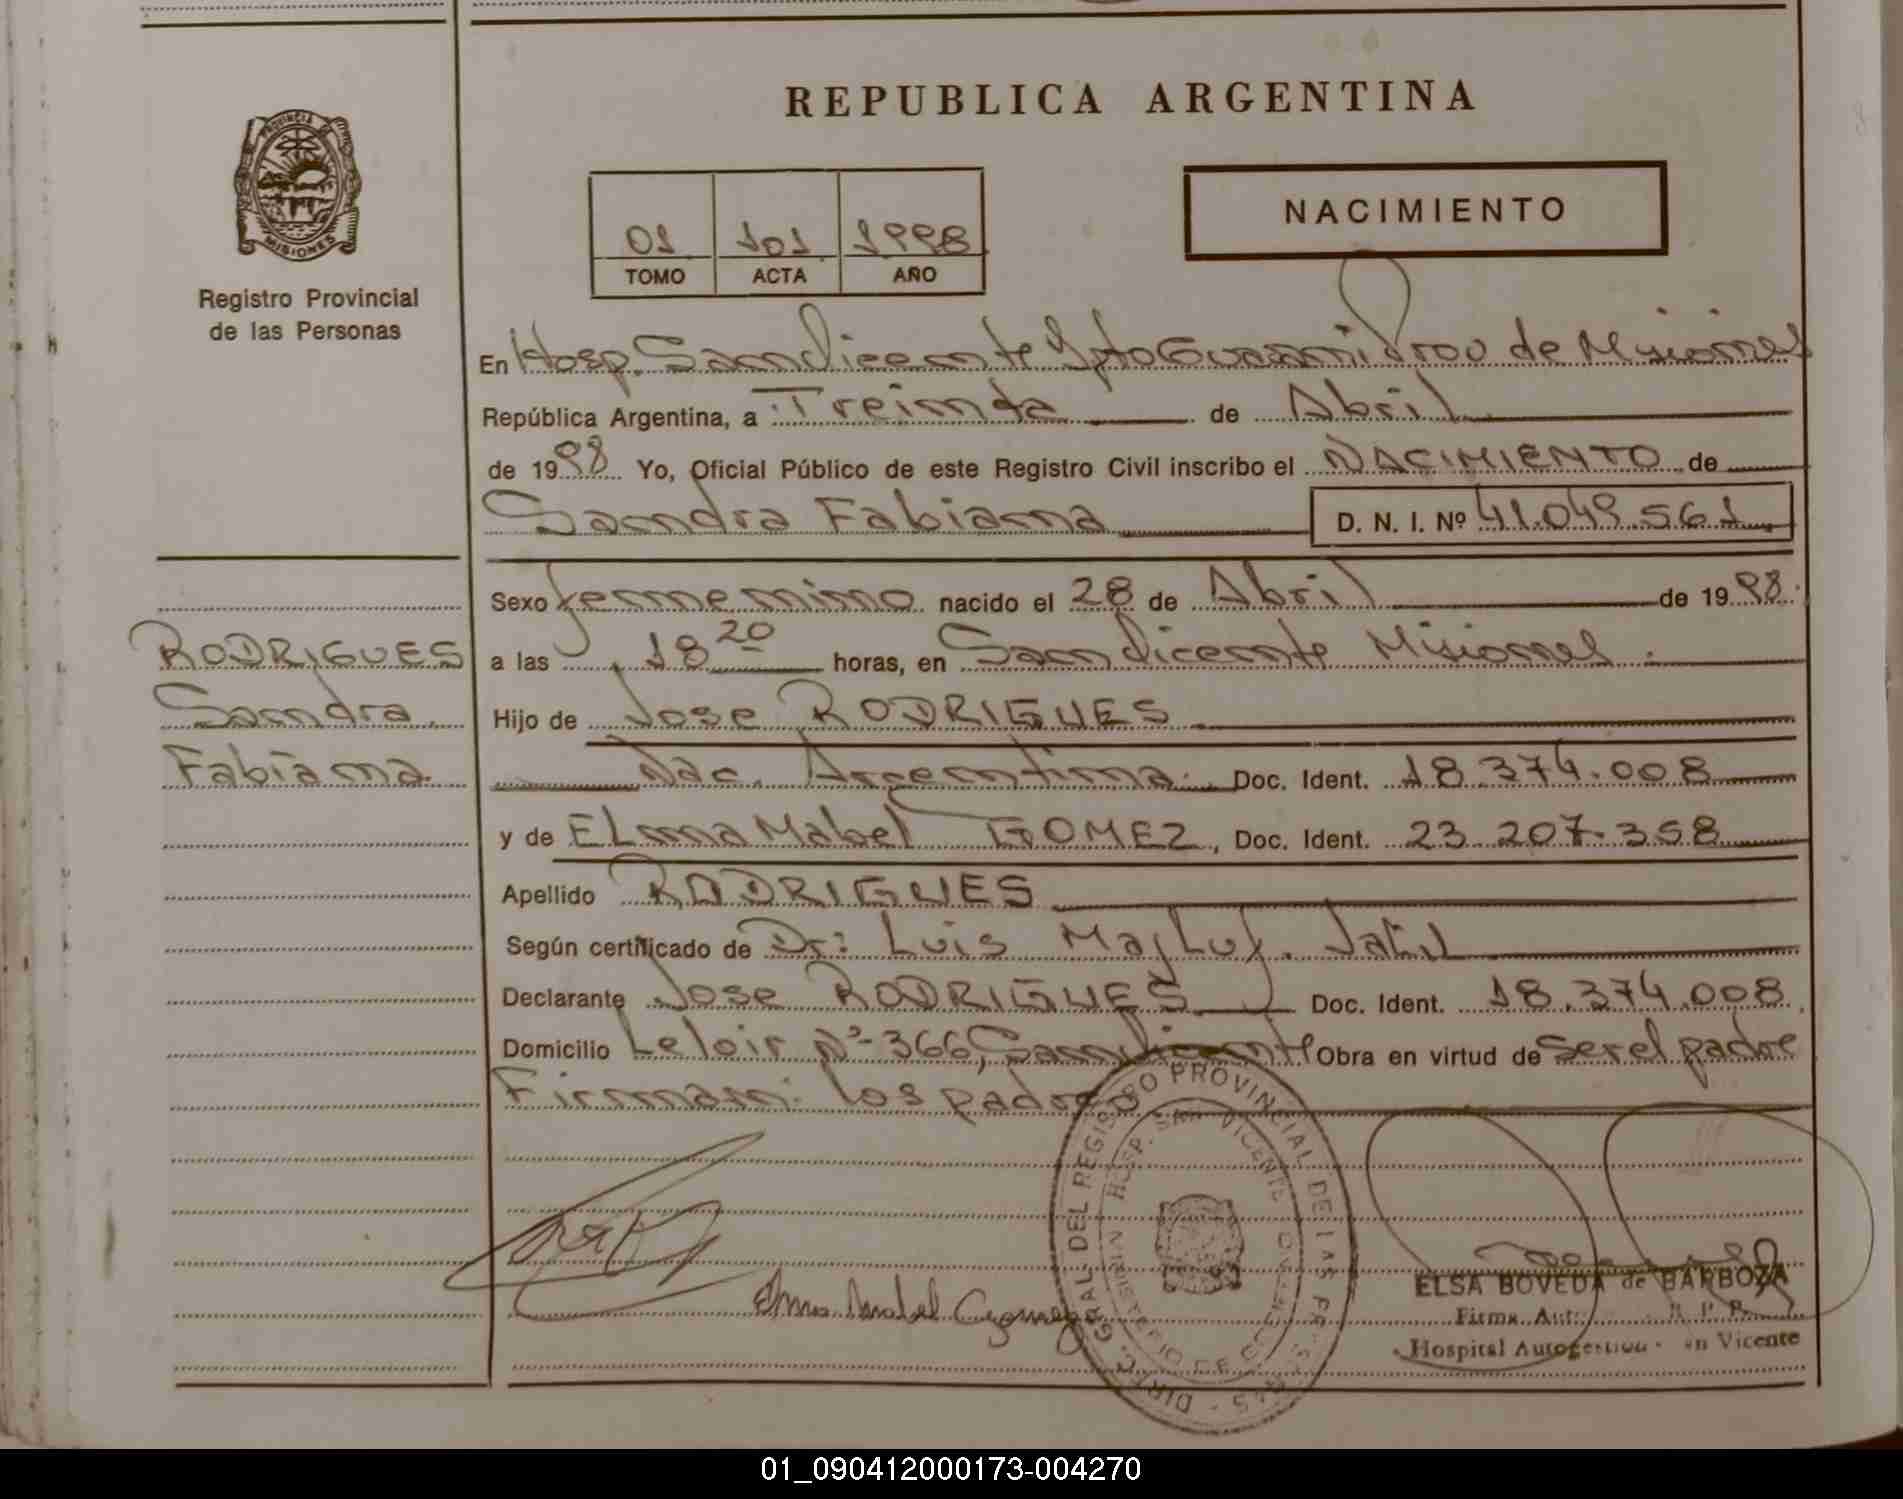 REPUBLICA ARGENTINA
PROVINCIA DE
MISIONES
Registro Provincial
de las Personas
01 101 1998
TOMO ACTA AÑO
NACIMIENTO
En Hosp. San Vicente Dpto Guarani Prov de Misiones
República Argentina, a Treinta de Abril
de 1998 Yo, Oficial Público de este Registro Civil inscribo el NACIMIENTO de
Sandra Fabiana D. N. I. Nº 41.049.561
Sexo femenino nacido el 28 de Abril de 1998.
RODRIGUES
Sandra
Fabiana
a las 18 20 horas, en San Vicente Misiones.
Hijo de Jose RODRIGUES
Nac. Argentina. Doc. Ident. 18.374.008
y de ELma Mabel GOMEZ, Doc. Ident. 23.207.358
Apellido RODRIGUES
Según certificado de Dr: Luis Majluf. Jatil
Declarante Jose RODRIGUES Doc. Ident. 18.374.008
Domicilio Leloir Nº 366, San Vicente Obra en virtud de ser el padre
Firman: los padres
Elma Mabel Gomez
DIRECC. GRAL DEL REGISTRO PROVINCIAL DE LAS PERSONAS
HOSP. SAN VICENTE
MINISTERIO DE GOBIERNO
ELSA BOVEDA de BARBOZA
Firma Aut. R. P. P.
Hospital Autogestion San Vicente
01_090412000173-004270